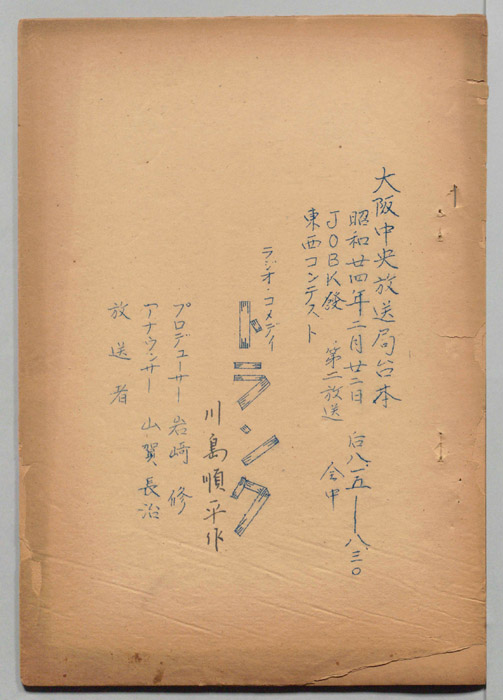 大阪中央放送局台本
昭和廿四年二月廿二日 后八.一五―八.三〇
JOBK發 第二放送 全中
東西コンテスト
ラジオ・コメディ
トランク
川島順平作
プロデューサー 岩崎 修
アナウンサー 山賀長治
放送者